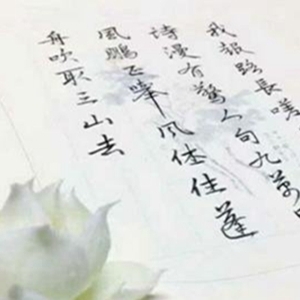 我報路長嗟
詩漫有驚人句九萬
風鵬正舉風休住蓬
舟吹取三山去